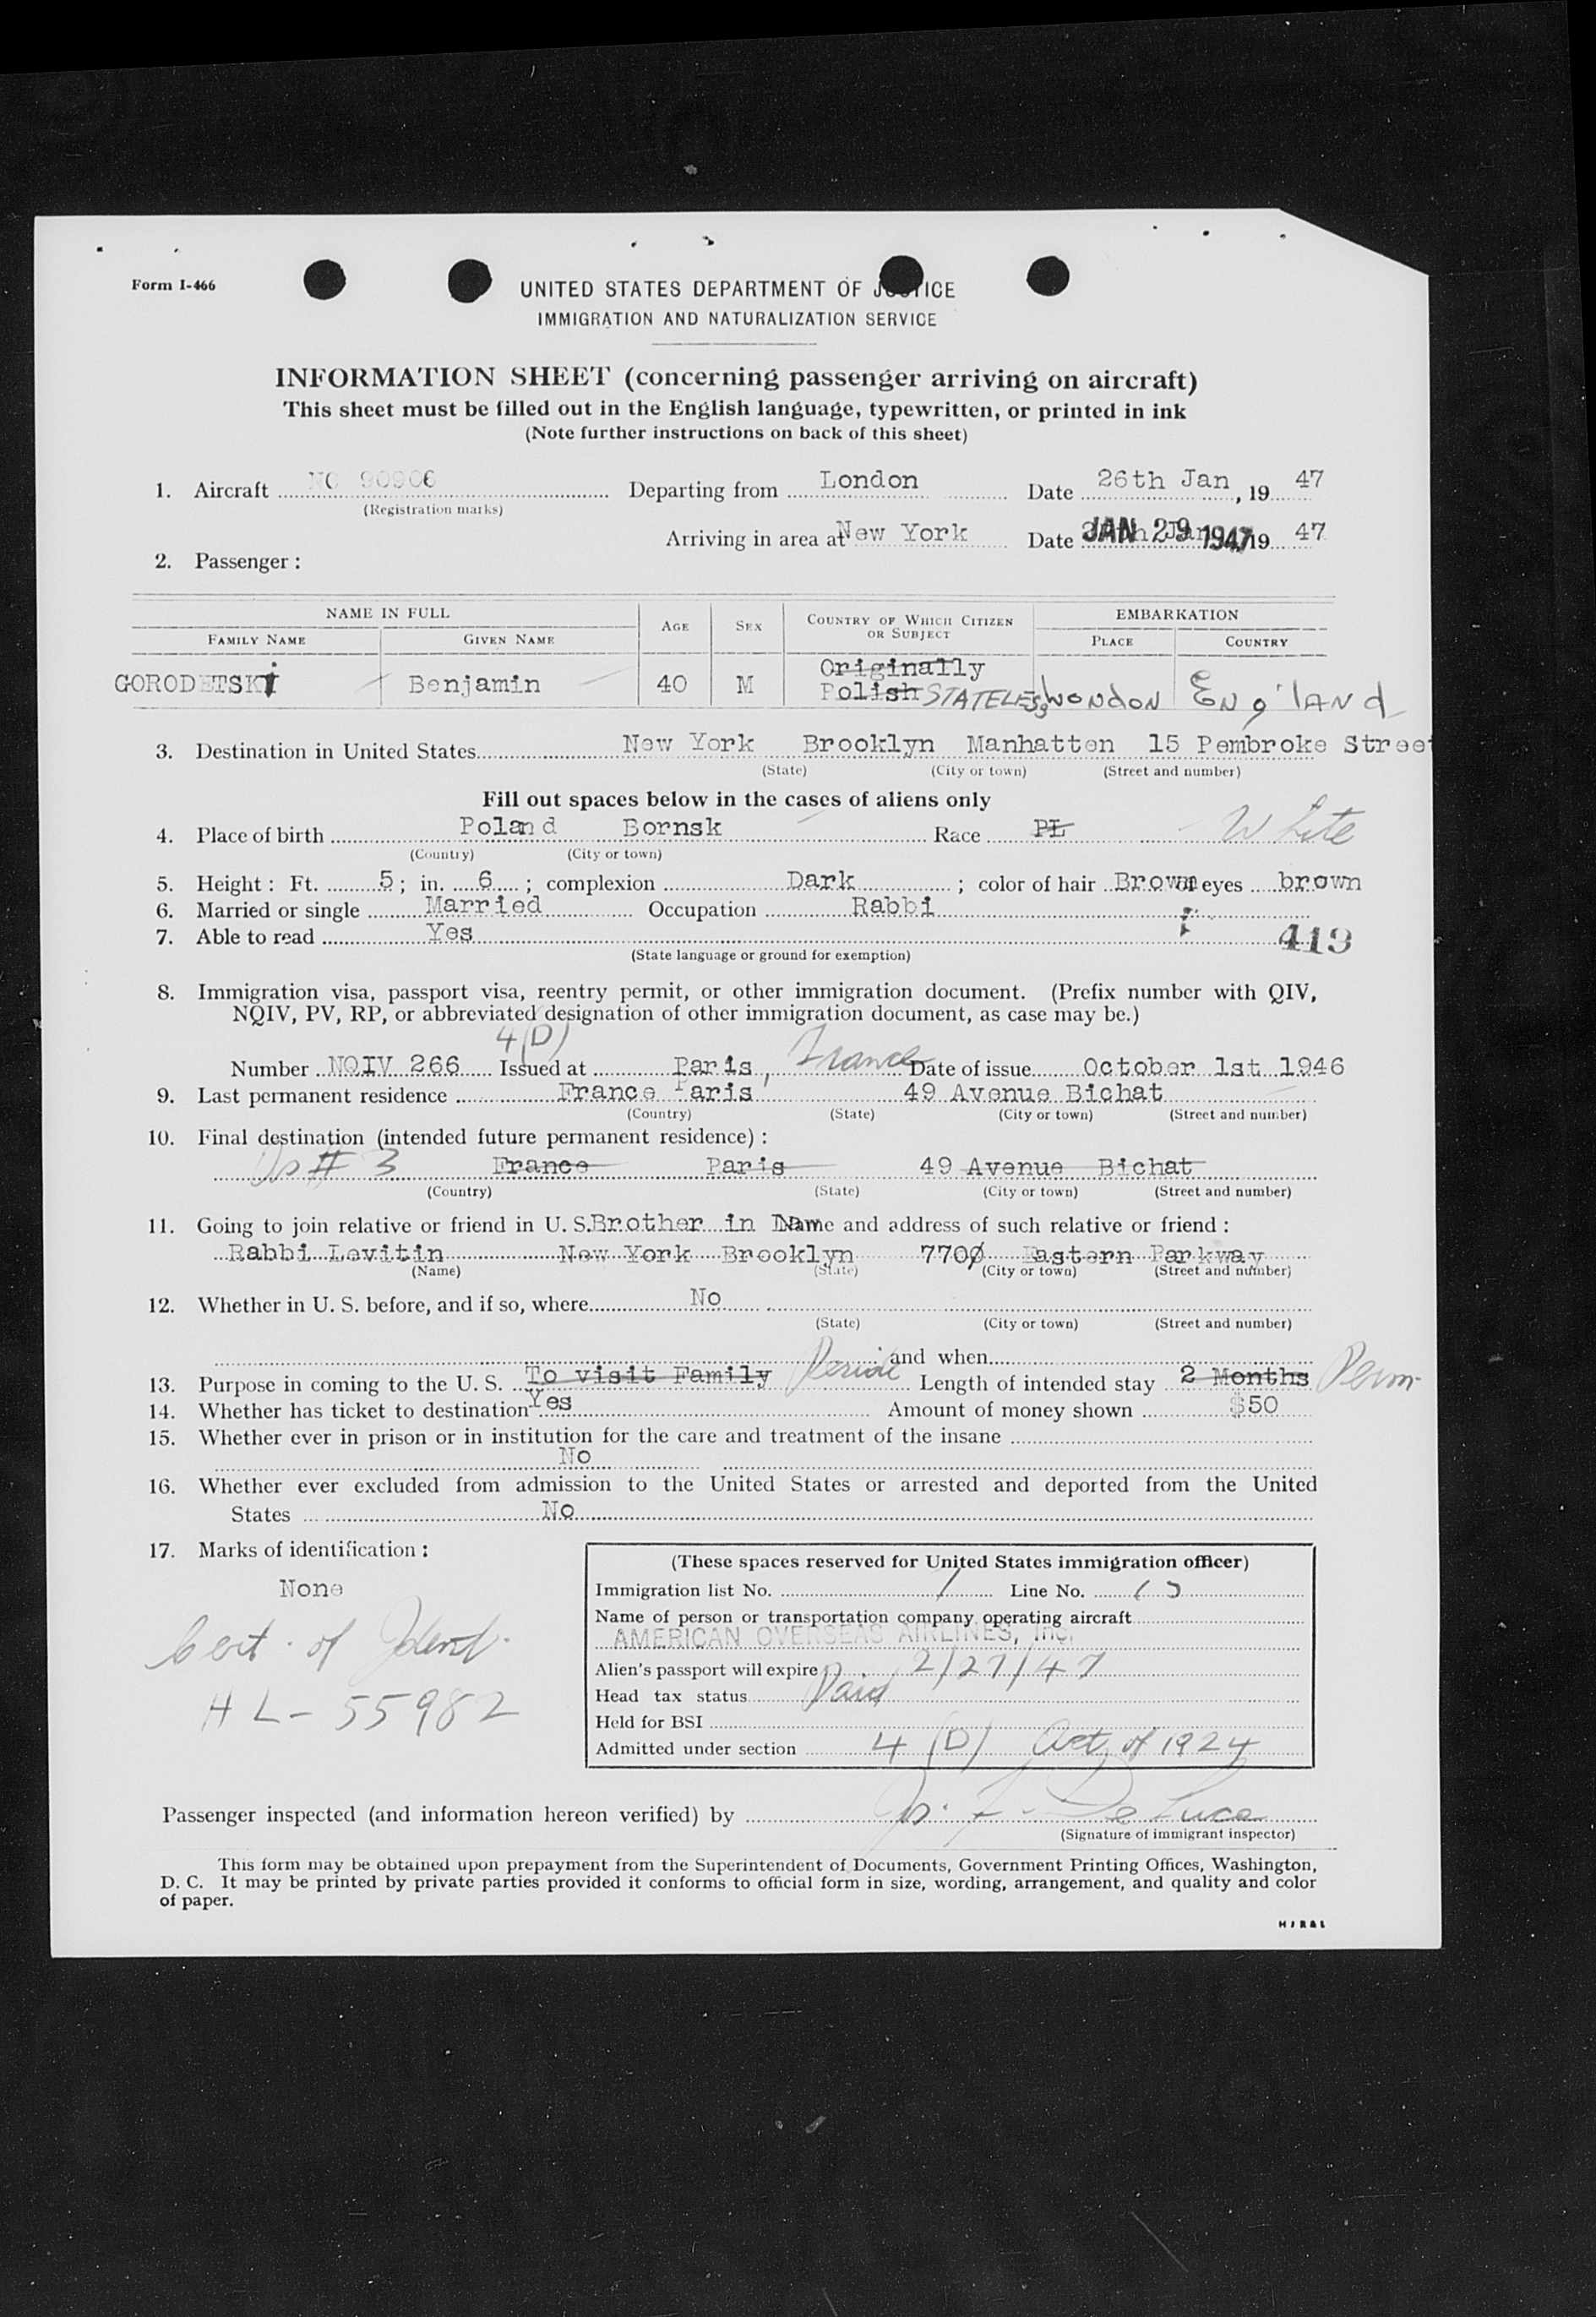 Form I-466
UNITED STATES DEPARTMENT OF JUSTICE
IMMIGRATION AND NATURALIZATION SERVICE
INFORMATION SHEET (concerning passenger arriving on aircraft)
This sheet must be filled out in the English language, typewritten, or printed in ink
(Note further instructions on back of this sheet)
1. Aircraft NC 90906 Departing from London Date 26th Jan, 19 47
(Registration marks)
Arriving in area at New York Date JAN 29 1947 19 47
2. Passenger:
NAME IN FULL AGE SEX COUNTRY OF WHICH CITIZEN OR SUBJECT EMBARKATION
FAMILY NAME GIVEN NAME PLACE COUNTRY
Originally
GORODETSKi Benjamin 40 M Polish STATELESS LONDON ENGLAND
3. Destination in United States New York Brooklyn Manhatten 15 Pembroke Street
(State) (City or town) (Street and number)
Fill out spaces below in the cases of aliens only
4. Place of birth Poland Bornsk Race PL White
(Country) (City or town)
5. Height: Ft. 5; in. 6; complexion Dark; color of hair Brown of eyes brown
6. Married or single Married Occupation Rabbi
7. Able to read Yes 413
(State language or ground for exemption)
8. Immigration visa, passport visa, reentry permit, or other immigration document. (Prefix number with QIV,
NQIV, PV, RP, or abbreviated designation of other immigration document, as case may be.)
4(D)
Number NQIV 266 Issued at Paris, France Date of issue October 1st 1946
9. Last permanent residence France Paris 49 Avenue Bichat
(Country) (State) (City or town) (Street and number)
10. Final destination (intended future permanent residence):
As # 3 France Paris 49 Avenue Bichat
(Country) (State) (City or town) (Street and number)
11. Going to join relative or friend in U. S. Brother in Law Name and address of such relative or friend:
Rabbi Levitin New York Brooklyn 770 Eastern Parkway
(Name) (State) (City or town) (Street and number)
12. Whether in U. S. before, and if so, where No
(State) (City or town) (Street and number)
and when
13. Purpose in coming to the U. S. To visit Family Reside Length of intended stay 2 Months Perm.
14. Whether has ticket to destination Yes Amount of money shown $50
15. Whether ever in prison or in institution for the care and treatment of the insane
No
16. Whether ever excluded from admission to the United States or arrested and deported from the United
States No
17. Marks of identification:
None
Cert. of Ident.
HL-55982
(These spaces reserved for United States immigration officer)
Immigration list No. 1 Line No.
Name of person or transportation company operating aircraft
AMERICAN OVERSEAS AIRLINES, Inc.
Alien's passport will expire 2/27/47
Head tax status Paid
Held for BSI
Admitted under section 4 (D) Act of 1924
Passenger inspected (and information hereon verified) by De Luca
(Signature of immigrant inspector)
This form may be obtained upon prepayment from the Superintendent of Documents, Government Printing Offices, Washington,
D. C. It may be printed by private parties provided it conforms to official form in size, wording, arrangement, and quality and color
of paper.